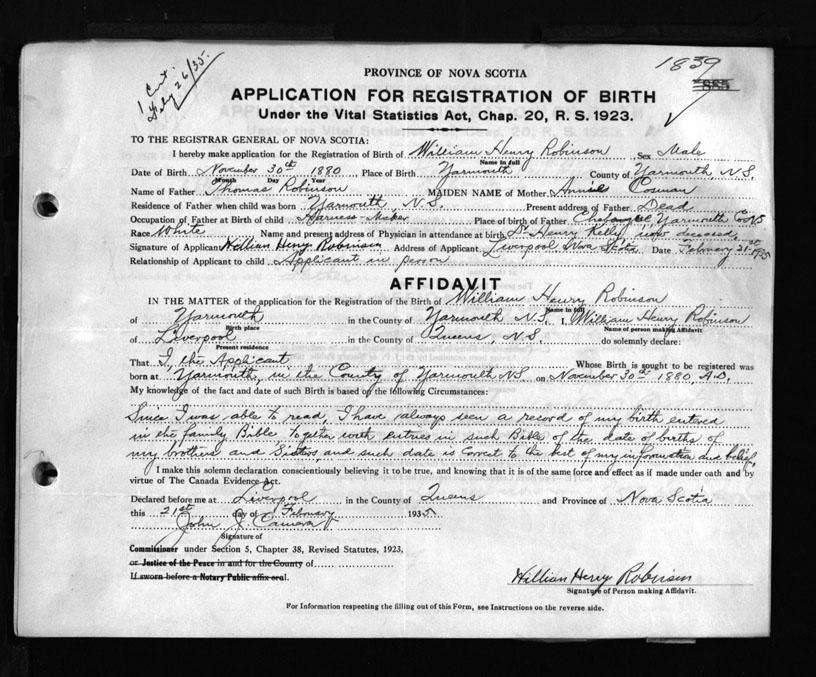 1 Cert.
Feby 26/35.
1839
PROVINCE OF NOVA SCOTIA
APPLICATION FOR REGISTRATION OF BIRTH
Under the Vital Statistics Act, Chap. 20, R. S. 1923.
TO THE REGISTRAR GENERAL OF NOVA SCOTIA:
I hereby make application for the Registration of Birth of William Henry Robinson Sex Male
Name in full
Date of Birth November 30th 1880 Place of Birth Yarmouth County of Yarmouth, N.S.
Month Day Year
Name of Father Thomas Robinson MAIDEN NAME of Mother Annie Cosman
Residence of Father when child was born Yarmouth, N.S. Present address of Father Dead
Occupation of Father at Birth of child Harness-Maker Place of birth of Father Chebogue, Yarmouth Co NS
Race White Name and present address of Physician in attendance at birth Dr Henry Kelly, now deceased,
Signature of Applicant William Henry Robinson Address of Applicant Liverpool Nova Scotia Date February 21st 1935
Relationship of Applicant to child Applicant in person
AFFIDAVIT
IN THE MATTER of the application for the Registration of the Birth of William Henry Robinson
Name in full
of Yarmouth in the County of Yarmouth N.S., I, William Henry Robinson
Birth place Name of person making Affidavit
of Liverpool in the County of Queens, N.S. do solemnly declare:
Present residence
That I, the Applicant Whose Birth is sought to be registered was
born at Yarmouth, in the County of Yarmouth N.S. on November 30th 1880, A.D.
My knowledge of the fact and date of such Birth is based on the following Circumstances:
Since I was able to read, I have always seen a record of my birth entered
in the family Bible together with entries in such Bible of the date of births of
my brothers and Sisters and such date is correct to the best of my information and belief,
I make this solemn declaration conscientiously believing it to be true, and knowing that it is of the same force and effect as if made under oath and by
virtue of The Canada Evidence Act.
Declared before me at Liverpool in the County of Queens and Province of Nova Scotia
this 21st day of February 1935.
John J. Cameron
Signature of
Commissioner under Section 5, Chapter 38, Revised Statutes, 1923,
or Justice of the Peace in and for the County of
If sworn before a Notary Public affix seal.
William Henry Robinson
Signature of Person making Affidavit.
For Information respecting the filling out of this Form, see Instructions on the reverse side.